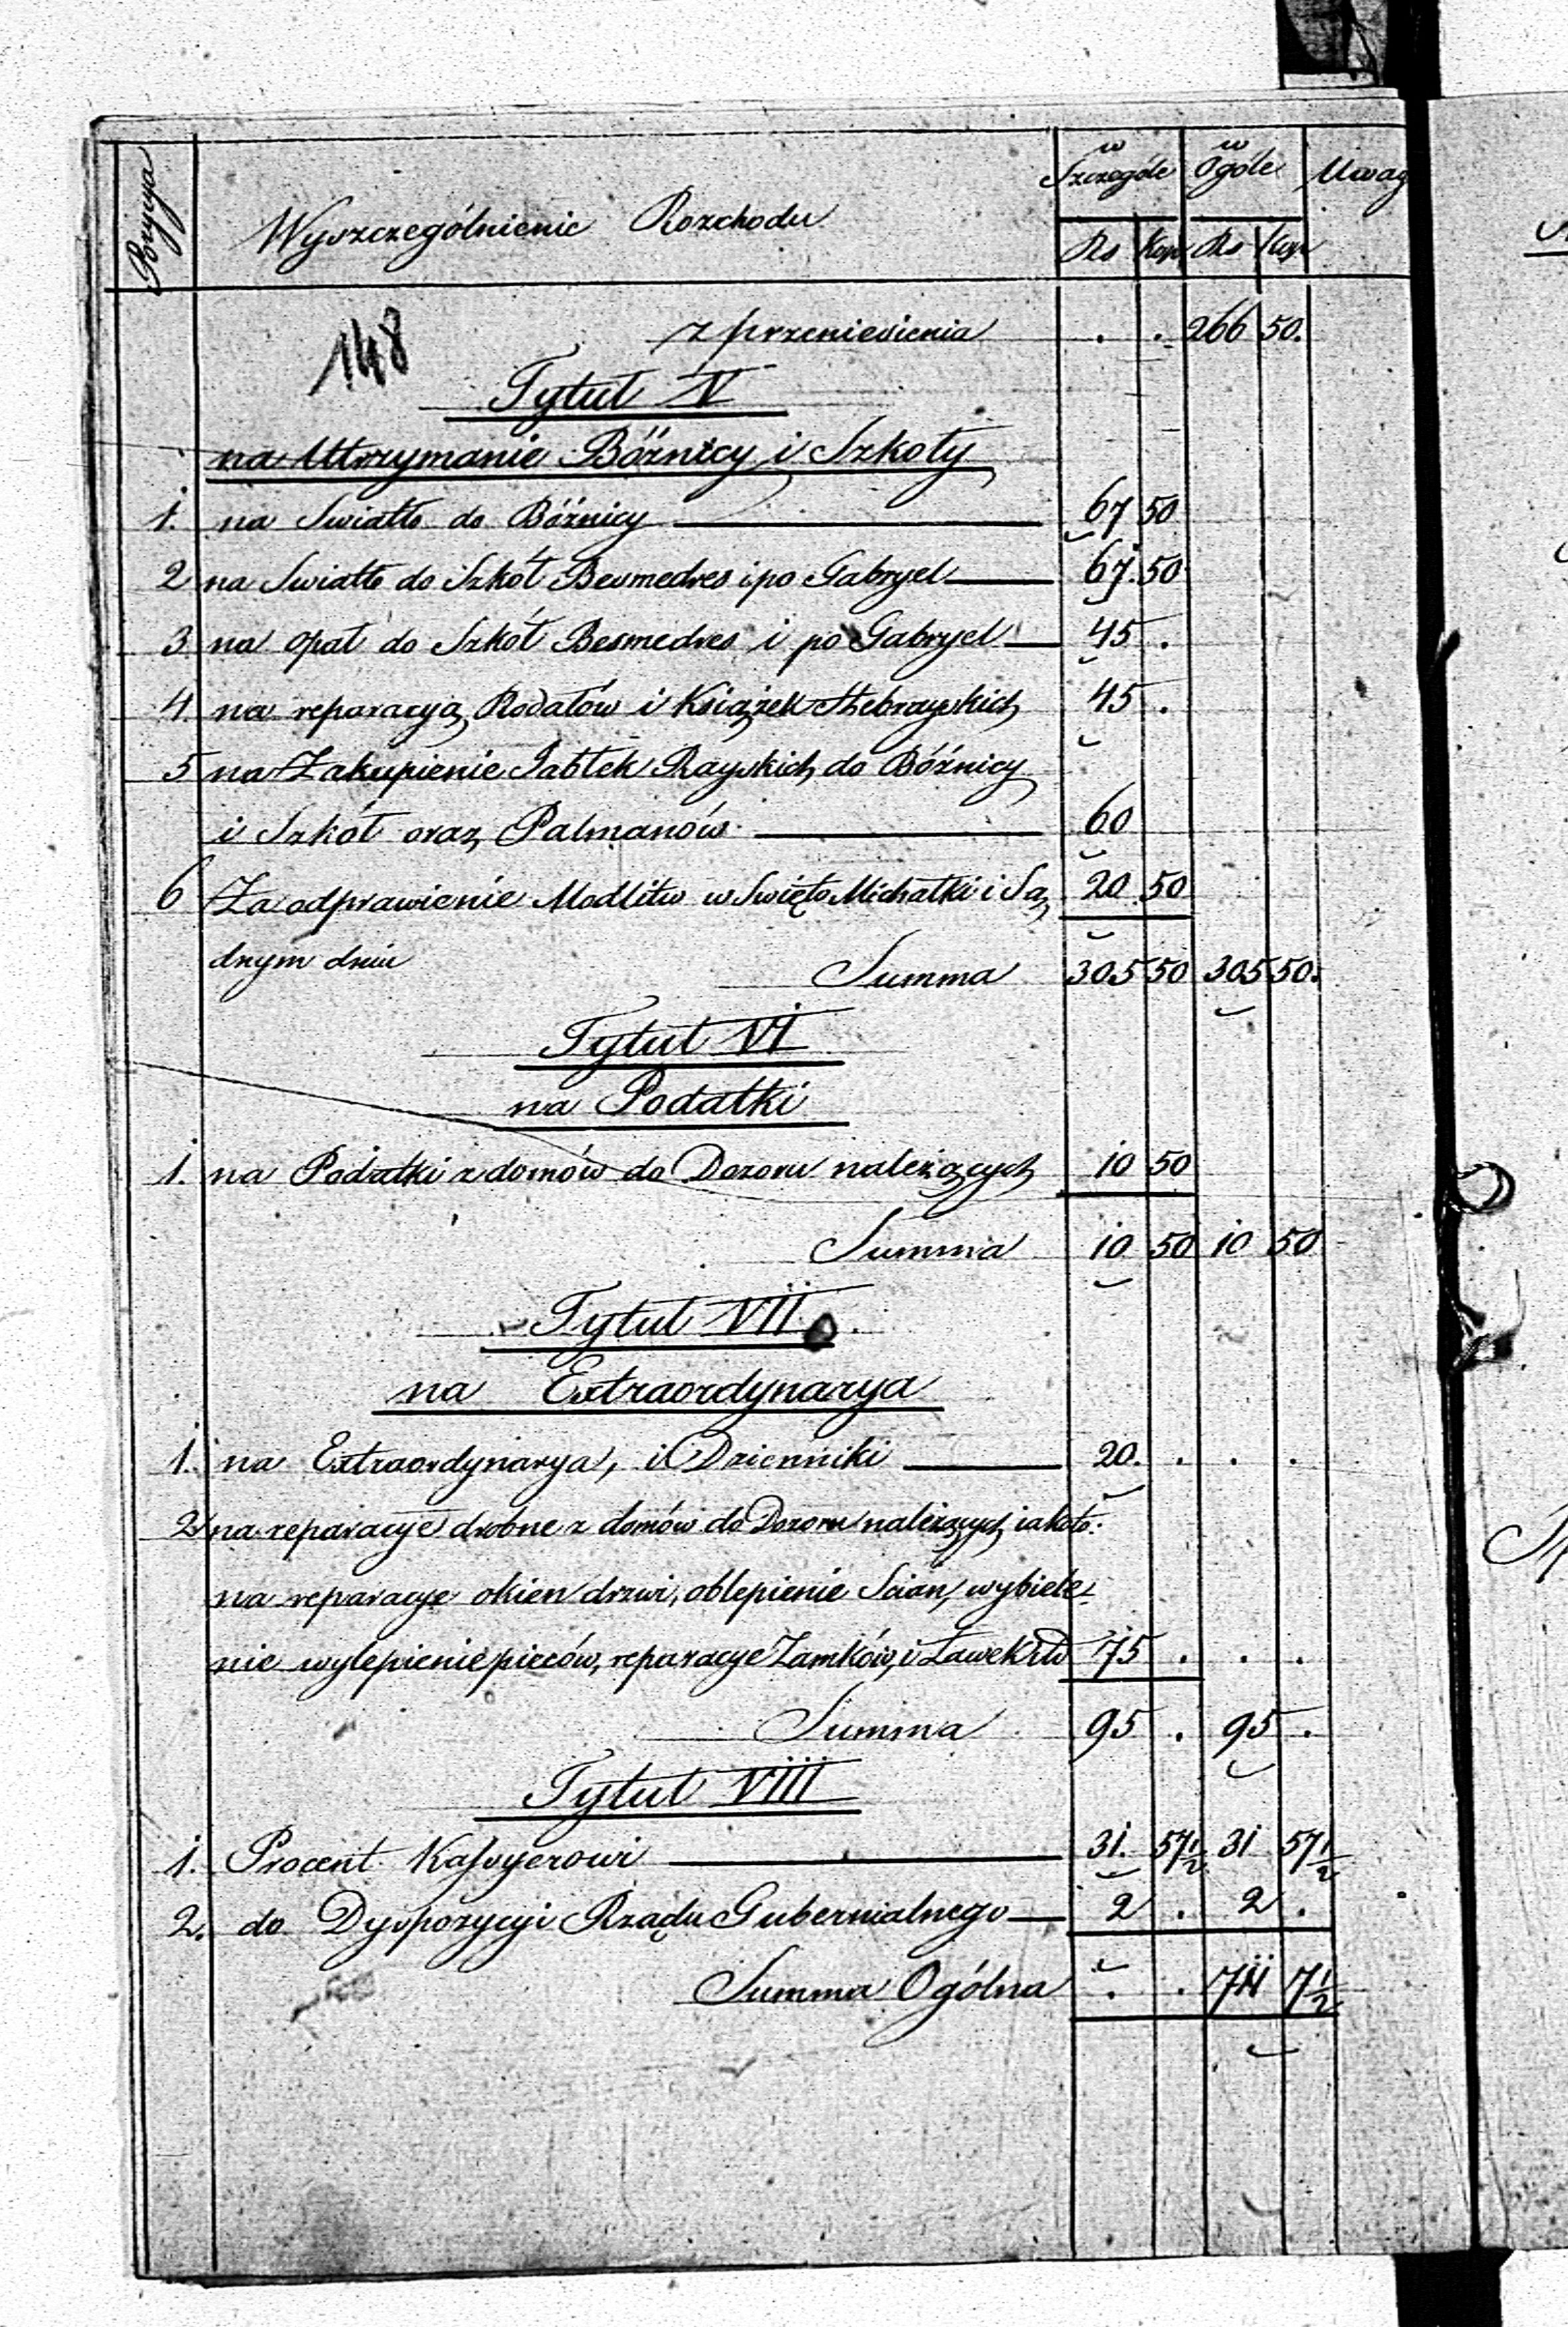 Pozycya | Wyszczególnienie Rozchodu | w Szczególe | w Ogóle | Uwag
Rs | Kop | Rs | Kop
z przeniesienia . . 266 50.
148
Tytuł V
na Utrzymanie Bóżnicy i Szkoły
1. na Swiatło do Bóżnicy 67 50
2 na Swiatło do Szkół Besmedres i po Gabryel 67. 50
3. na opał do Szkół Besmedres i po Gabryel 45 .
4. na reparacyą Rodałów i Książek Hebrayskich 45 .
5 na Zakupienie Jabłek Rayskich do Bóźnicy
i Szkół oraz Palmanów 60
6 Za odprawienie Modlitw w Swięto Michałki i Są 20 50
dnym dniu
Summa 305 50 305 50.
Tytuł VI
na Podatki
1. na Podatki z domów do Dozoru należących 10 50
Summa 10 50 10 50
Tytuł VII
na Extraordynarya
1. na Extraordynarya, i Dzienniki 20. . . .
2 na reparacye drobne z domów do Dozoru należących iako to:
na reparacye okien drzwi, oblepienie Scian, wybiele
nie wylepienie pieców, reparacye Zamków, i Ławek itd 75 . . .
Summa 95 . 95 .
Tytuł VIII
1. Procent Kassyerowi 31. 57½ 31 57½
2. do Dyspozycyi Rządu Gubernialnego 2 . 2 .
Summa Ogólna . . 711 7½